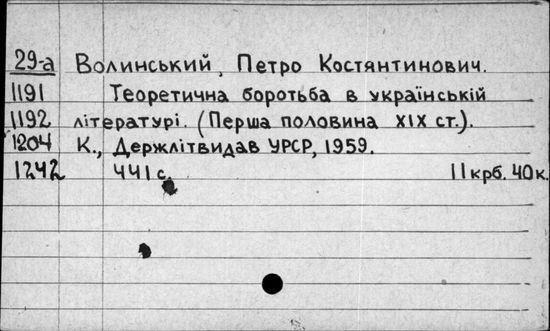 29-а Волинський, Петро Костянтинович.
1191 Теоретична боротьба в українській
1192 літературі. (Перша половина XIX ст.).
1204 К., Держлітвидав УРСР, 1959.
1242 441 с. 11 крб. 40 к.